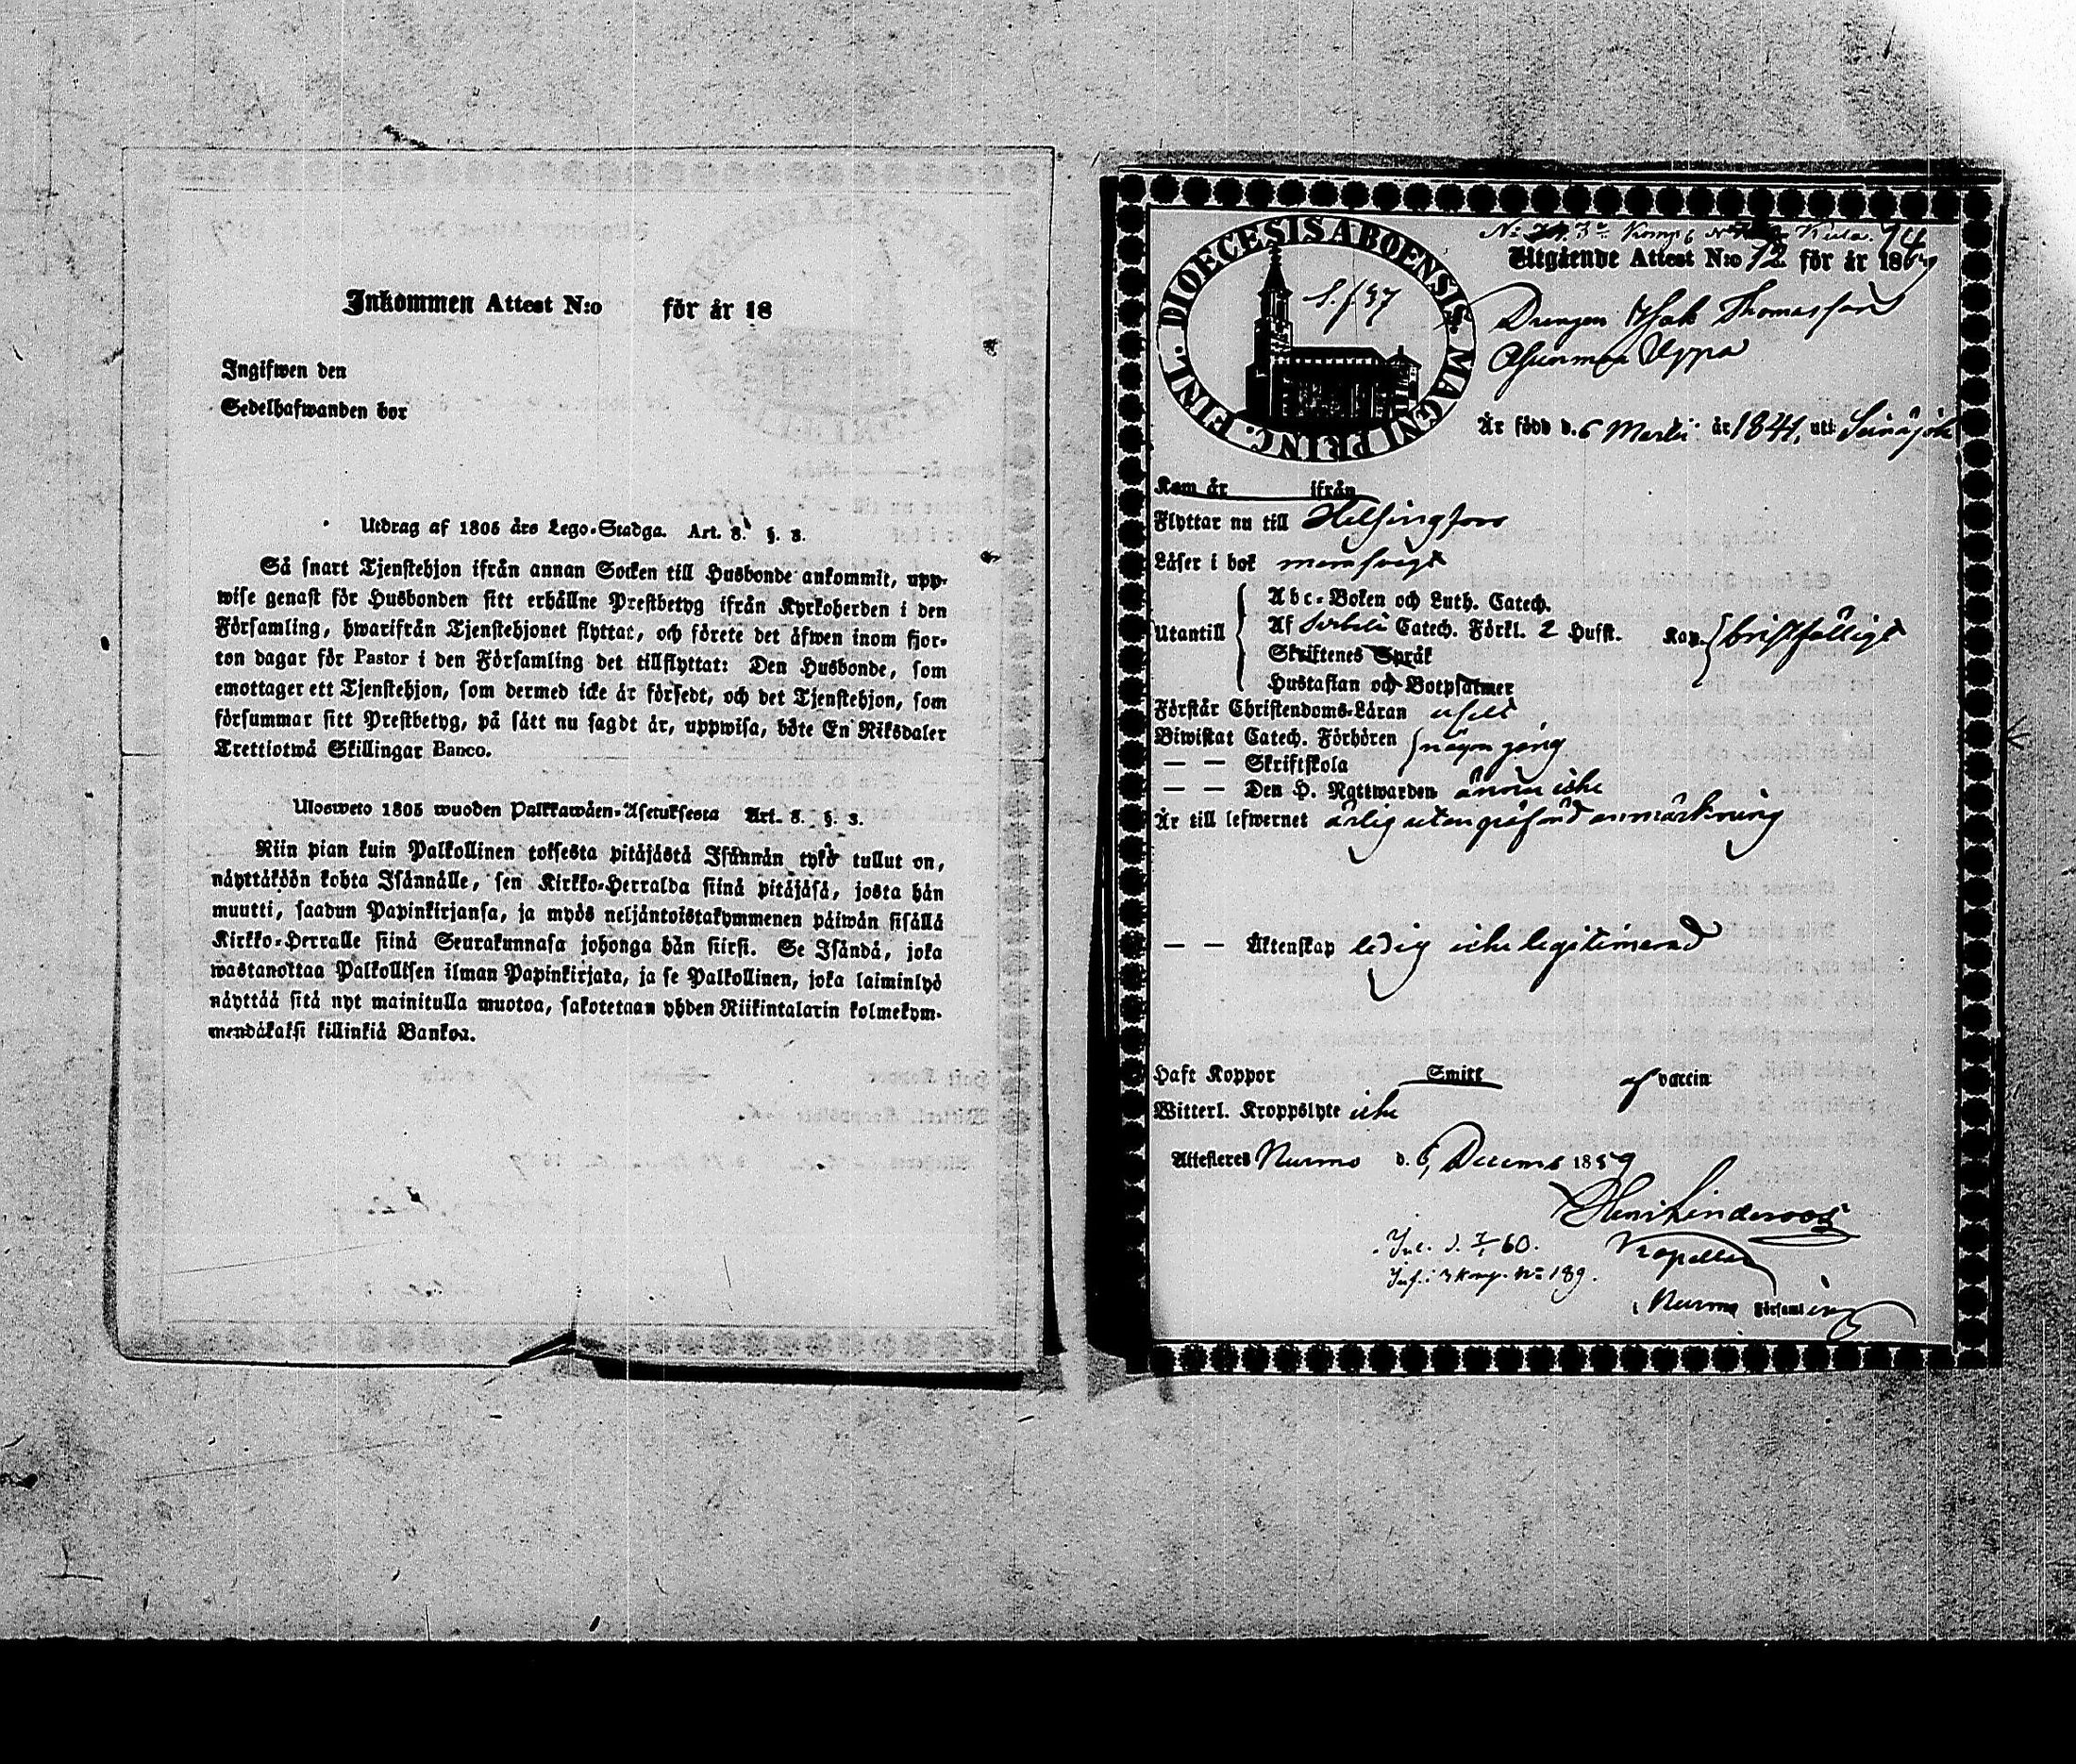 Inkommen Attest N:o för år 18
Ingifwen den
Sedelhafwanden bor
Utdrag af 1805 års Lego-Stadga. Art. 8. §. 3.
Så snart Tjenstehjon ifrån annan Socken till Husbonde ankommit, upp-
wise genast för Husbonden sitt erhållne Prestbetyg ifrån Kyrkoherden i den
Församling, hwarifrån Tjenstehjonet flyttat, och förete det äfwen inom fjor-
ton dagar för Pastor i den Församling det tillflyttat: Den Husbonde, som
emottager ett Tjenstehjon, som dermed icke är försedt, och det Tjenstehjon, som
försummar sitt Prestbetyg, på sätt nu sagdt är, uppwisa, böte En Riksdaler
Trettiotwå Skillingar Banco.
Ulosweto 1805 wuoden Palkkawäen-Asetuksesta Art. 8. §. 3.
Niin pian kuin Palkollinen toisesta pitäjästä Isännän tykö tullut on,
näyttäköön kohta Isännälle, sen Kirkko-Herralda siinä pitäjäsä, josta hän
muutti, saadun Papinkirjansa, ja myös neljäntoistakymmenen päiwän sisällä
Kirkko-Herralle siinä Seurakunnasa johonga hän siirsi. Se Isändä, joka
wastanottaa Palkollisen ilman Papinkirjata, ja se Palkollinen, joka laiminlyö
näyttää sitä nyt mainitulla muotoa, sakotetaan yhden Riikintalarin kolmekym-
mendäkaksi killinkiä Bankoa.
DIOECESIS ABOENSIS MAGNI PRINC. FINL.
74
Utgående Attest N:o 72 för år 18
Drengen Isak Thomasson
Uppa
Är född d. 6 Martii år 1841, uti Seinäjoki
Kom år ifrån
Flyttar nu till Helsingfors
Läser i bok
Utantill
Abc-Boken och Luth. Catech.
Af Svebilii Catech. Förkl. 2 Hufst. Kan bristfälligt
Skriftenes Språk
Hustaflan och Botpsalmer
Förstår Christendoms-Läran uselt
Biwistat Catech. Förhören någon gång
— — Skriftskola
— — Den H. Nattwarden ännu icke
Är till lefwernet ärlig utan påförd anmärkning
— — Äktenskap ledig icke legitimerad
Haft Koppor Smitt af vaccin
Witterl. Kroppslyte icke
Attesteres Nurmo d. 6 Decemb 1859
Inl. d. 7/1 60.
Inf. i 3 komp. No 189.
i Nurmo Församling